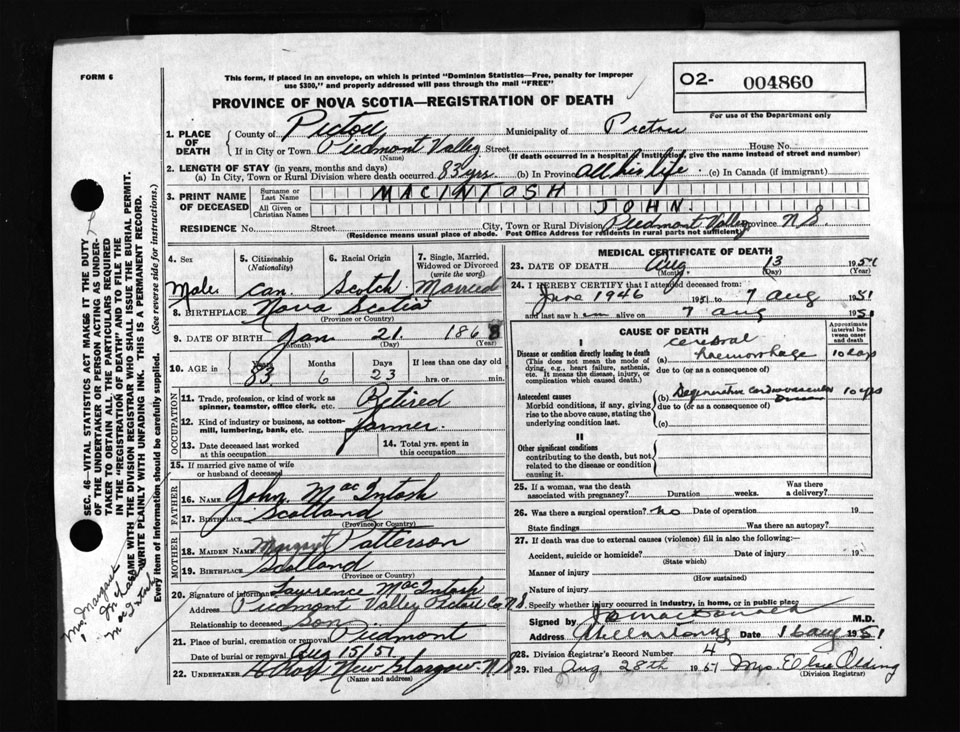 FORM 6
This form, if placed in an envelope, on which is printed "Dominion Statistics—Free, penalty for improper
use $300," and properly addressed will pass through the mail "FREE"
O2- 004860
For use of the Department only
PROVINCE OF NOVA SCOTIA—REGISTRATION OF DEATH
1. PLACE OF DEATH { County of Pictou Municipality of Pictou
If in City or Town Piedmont Valley Street House No.
(Name) (If death occurred in a hospital or institution, give the name instead of street and number)
2. LENGTH OF STAY (in years, months and days)
(a) In City, Town or Rural Division where death occurred 83 yrs. (b) In Province all his life (c) In Canada (if immigrant)
3. PRINT NAME OF DECEASED { Surname or Last Name MACINTOSH
All Given or Christian Names JOHN.
RESIDENCE No. Street City, Town or Rural Division Piedmont Valley Province N.S.
(Residence means usual place of abode. Post Office Address for residents in rural parts not sufficient)
SEC. 46—VITAL STATISTICS ACT MAKES IT THE DUTY
OF THE UNDERTAKER OR PERSON ACTING AS UNDER-
TAKER TO OBTAIN ALL THE PARTICULARS REQUIRED
IN THE "REGISTRATION OF DEATH" AND TO FILE THE
SAME WITH THE DIVISION REGISTRAR WHO SHALL ISSUE THE BURIAL PERMIT.
WRITE PLAINLY WITH UNFADING INK. THIS IS A PERMANENT RECORD.
Every item of information should be carefully supplied. (See reverse side for instructions.)
Mrs Margaret
MacIntosh
4. Sex 5. Citizenship (Nationality) 6. Racial Origin 7. Single, Married, Widowed or Divorced (write the word)
Male. Can. Scotch Married
8. BIRTHPLACE Nova Scotia
(Province or Country)
9. DATE OF BIRTH Jan 21. 1868
(Month) (Day) (Year)
10. AGE in { Years Months Days If less than one day old
83 6 23 hrs. or min.
OCCUPATION
11. Trade, profession, or kind of work as
spinner, teamster, office clerk, etc. Retired
12. Kind of industry or business, as cotton-
mill, lumbering, bank, etc. farmer.
13. Date deceased last worked
at this occupation 14. Total yrs. spent in
this occupation
15. If married give name of wife
or husband of deceased
FATHER
16. Name John MacIntosh
17. Birthplace Scotland
(Province or Country)
MOTHER
18. Maiden Name Margaret Patterson
19. Birthplace Scotland
(Province or Country)
20. Signature of informant Lawrence MacIntosh
Address Piedmont Valley Pictou Co. N.S.
Relationship to deceased son
21. Place of burial, cremation or removal Piedmont
Date of burial or removal Aug 15/51
22. Undertaker New Glasgow N.S
(Name and address)
MEDICAL CERTIFICATE OF DEATH
23. DATE OF DEATH Aug 13 1951
(Month) (Day) (Year)
24. I HEREBY CERTIFY that I attended deceased from:
June 1946 1951 to 7 Aug 1951
and last saw him alive on 7 aug 1951
CAUSE OF DEATH
Approximate interval between onset and death
I
Disease or condition directly leading to death
(This does not mean the mode of
dying, e.g., heart failure, asthenia,
etc. It means the disease, injury, or
complication which caused death.)
(a) cerebral haemorrhage 10 days
due to (or as a consequence of)
Antecedent causes
Morbid conditions, if any, giving
rise to the above cause, stating the
underlying condition last.
(b) Degenerative cardiovascular 10 yrs
due to (or as a consequence of) Disease
(c)
II
Other significant conditions
contributing to the death, but not
related to the disease or condition
causing it.
25. If a woman, was the death
associated with pregnancy? Duration weeks. Was there
a delivery?
26. Was there a surgical operation? no Date of operation 19
State findings Was there an autopsy?
27. If death was due to external causes (violence) fill in also the following:
Accident, suicide or homicide? Date of injury 19
(State which)
Manner of injury
(How sustained)
Nature of injury
Specify whether injury occurred in industry, in home, or in public place
Signed by MacDonald M.D.
Address Date 16 aug 1951
28. Division Registrar's Record Number 4
29. Filed Aug 28th 1951 Mrs. Elsie Olding
(Division Registrar)